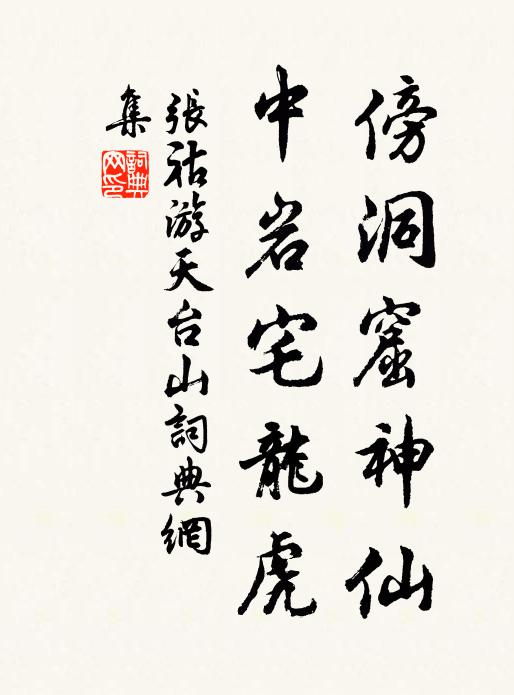 傍洞窟神仙
中岩宅龍虎
張祜游天台山詞典網
集
詞典
网印